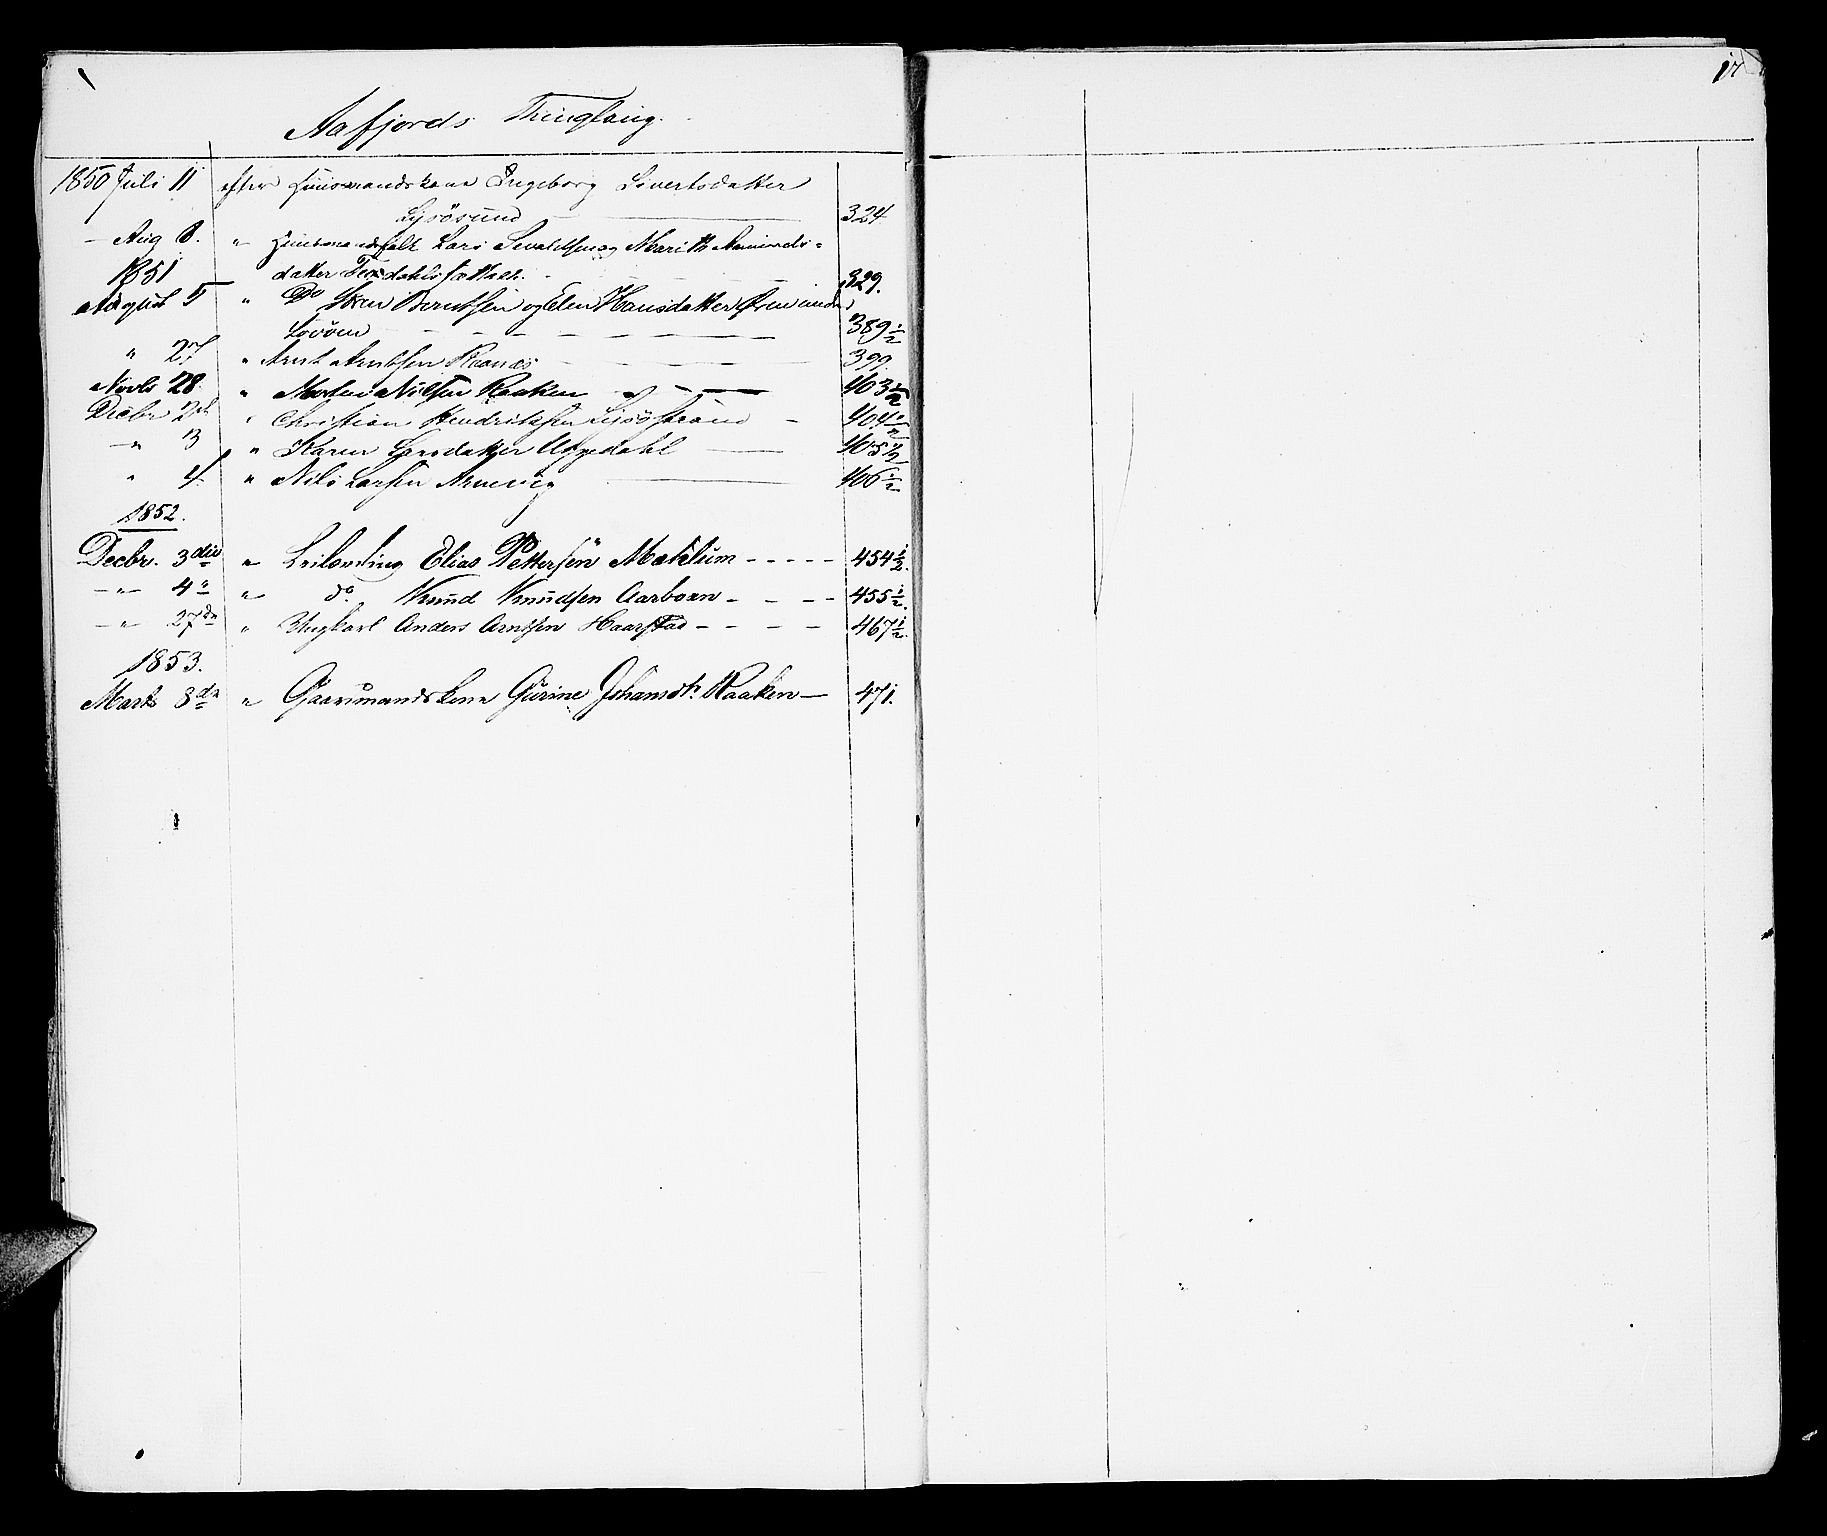 17
Aafjords Thinglaug.
1850 Juli 11 efter Huusmandskone Ingeborg Sivertsdatter
Lysösund 324
- Aug 8. " Huusmandsfolk Lars Sevaldsen og Marith
1851 datter 329.
August 5 " Do Berntsen og Elen Hansdatter
389 1/2
" 27 " Arnt Arntsen Raanes 399
Novbr 28. " Morten Nilsen Raaken 403 1/2
Decbr 2den " Christian Hendriksen Lysöstrand - 404 1/2
- " 3 " Karen Larsdatter Opdahl 405 1/2
" 4. " Nils Larsen Arnevig 406 1/2
1852.
Decbr. 3die " Leilænding Elias Pettersen Mælum - - - - - 454 1/2.
- " - 4de " do. Knud Knudsen Aarboen - - - - 455 1/2.
- " 27de " Ungkarl Anders Arntsen Haarstad - - - - 467 1/2.
1853.
Marts 3de " Gaardmandskone Gurine Johansdtr. Raaken - 471.